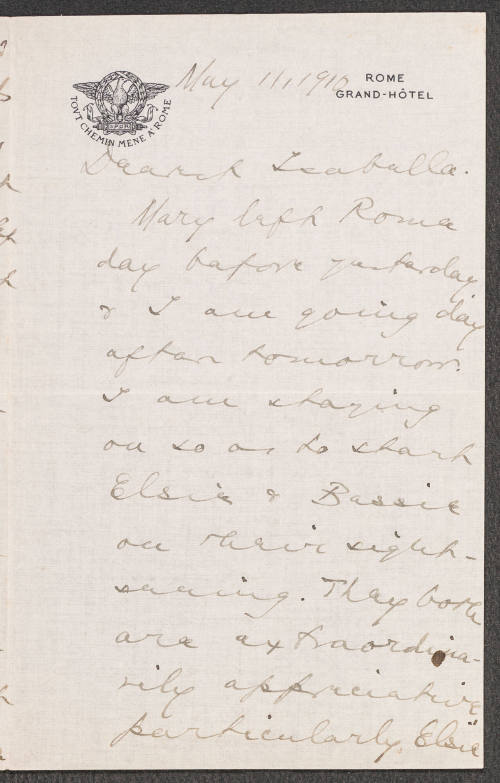 May 11, 1910
ROME
GRAND-HÔTEL
SPQR
TOVT CHEMIN MENE A ROME
Dearest Isabella.
Mary left Rome
day before yesterday
& I am going day
after tomorrow.
I am staying
on so as to start
Elsie & Bessie
on their sight-
seeing. They both
are extraordina-
rily appreciative
particularly, Elsie